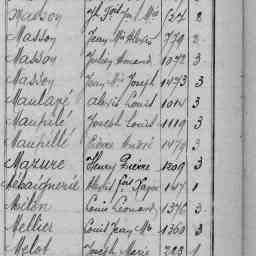 Masson
Masson Jean Mie Alexis 779 2
Masson Julien Amand 1072 3
Masson Jean Mie Joseph 1493 3
Maulavé Alexis Louis 1014 3
Maupilé Joseph Louis 1119 3
Maupillé Pierre André 1479 3
Mazure Henri Pierre 1209 3
Mébaignerie Alexis 1
Mélen Louis Léonard 1376 3
Mellier Louis Jean Mie 1360 3
Melot Joseph Marie 223 1